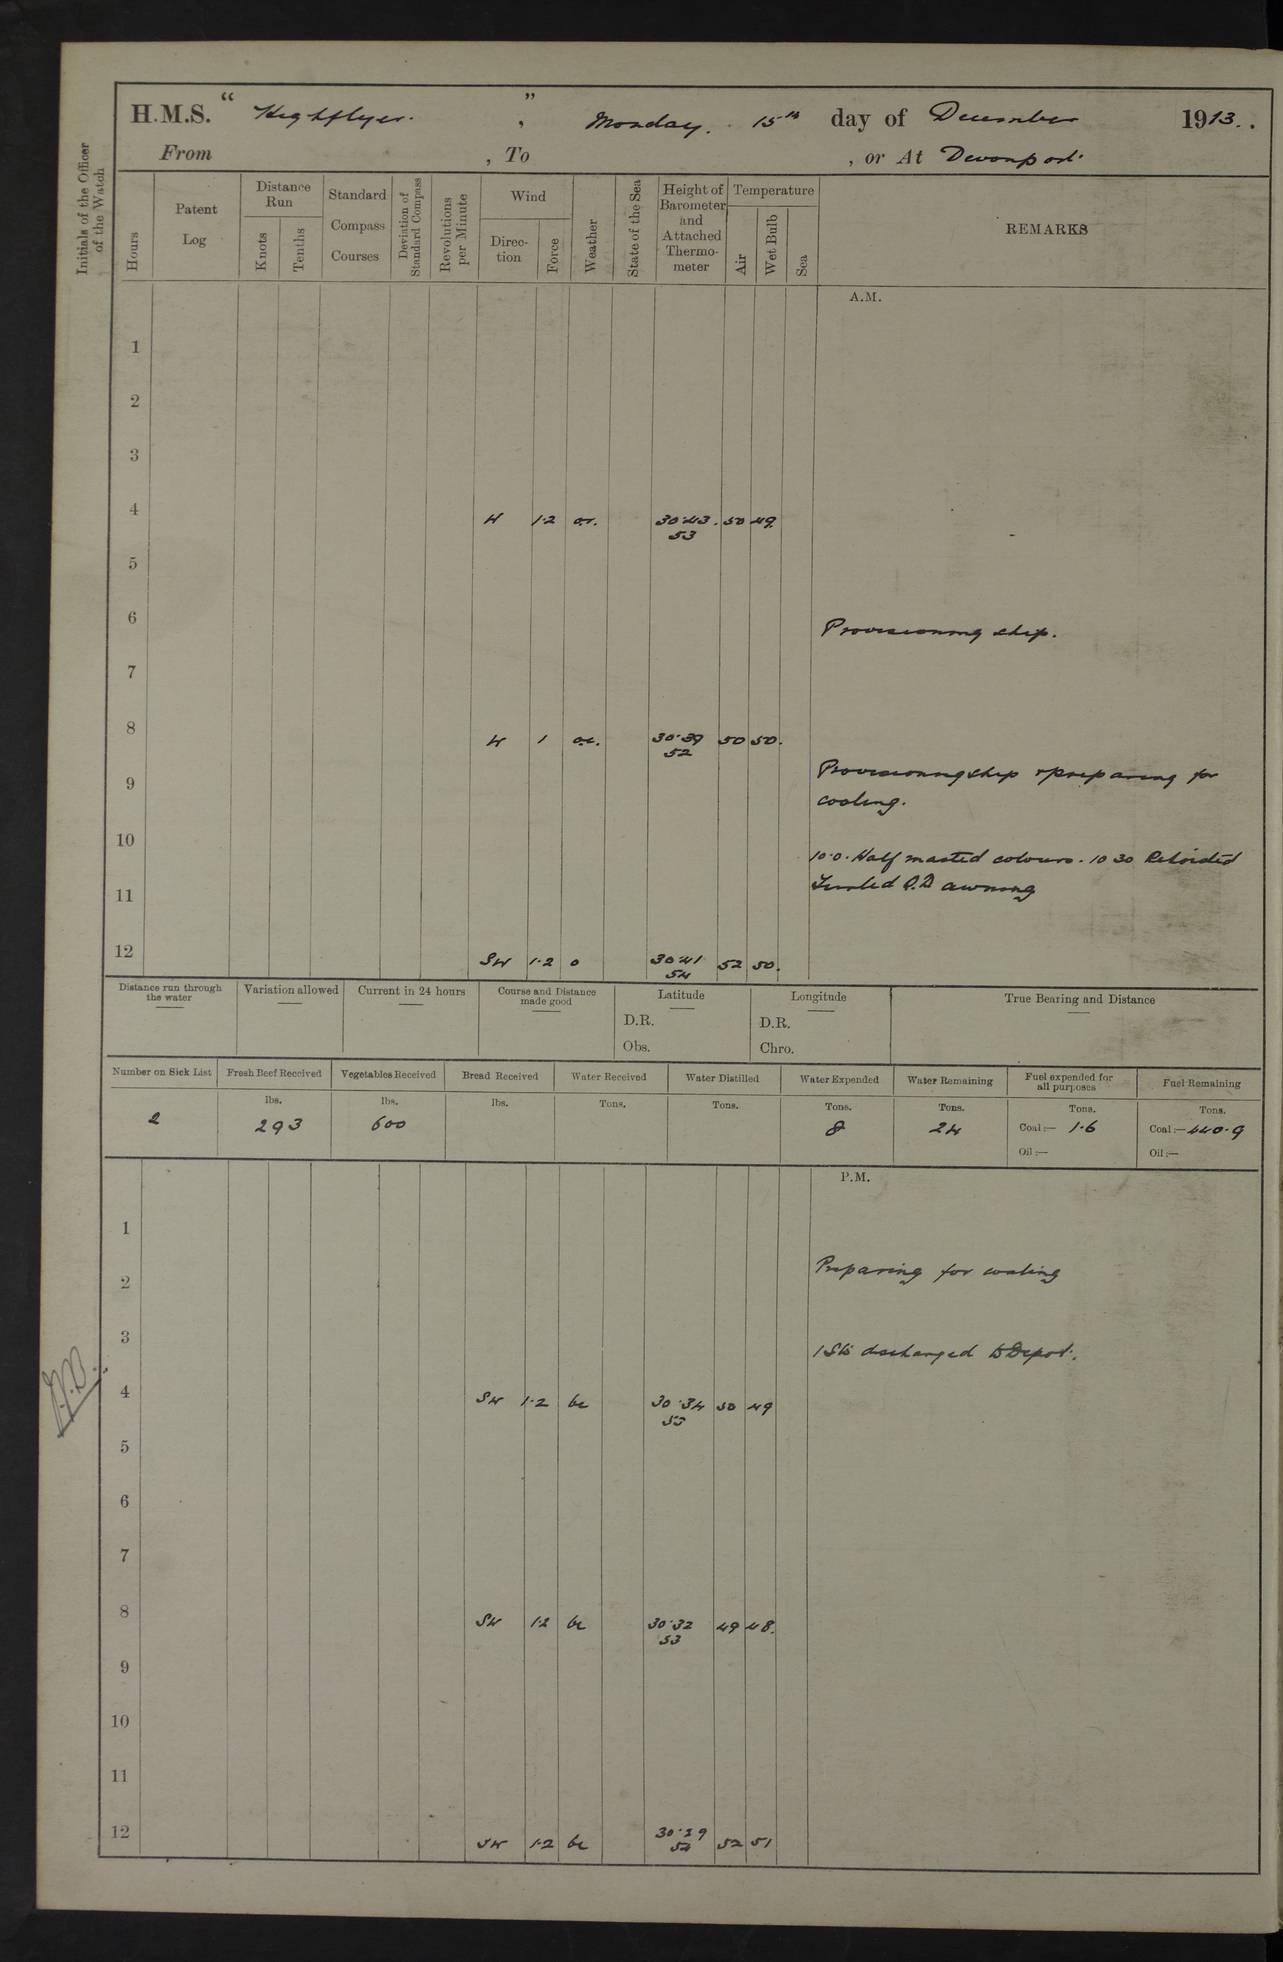 H.M.S. “ Highflyer. ” , Monday. 15th day of December 1913.
From , To , or At Devonport.
Initials of the Officer of the Watch
Hours
Patent Log
Distance Run
Knots
Tenths
Standard Compass Courses
Deviation of Standard Compass
Revolutions per Minute
Wind
Direction
Force
Weather
State of the Sea
Height of Barometer and Attached Thermometer
Temperature
Air
Wet Bulb
Sea
REMARKS
A.M.
1
2
3
4 W 1·2 30·43. 50 49.
53
5
6 Provisioning ship.
7
8 W 1 30·39 50 50.
52
9 Provisioning ship & preparing for
coaling.
10 10·0. Half masted colours. 10 30 Rehoisted
11 Furled Q.D awning
12 SW 1·2 o 30·41 52 50.
54
Distance run through the water
Variation allowed
Current in 24 hours
Course and Distance made good
Latitude
Longitude
True Bearing and Distance
D.R. D.R.
Obs. Chro.
Number on Sick List Fresh Beef Received Vegetables Received Bread Received Water Received Water Distilled Water Expended Water Remaining Fuel expended for all purposes Fuel Remaining
lbs. lbs. lbs. Tons. Tons. Tons. Tons. Tons. Tons.
2 293 600 8 24 Coal :— 1·6 Coal :— 440·9
Oil :— Oil :—
P.M.
1
2 Preparing for coaling
3 1 Sto discharged to Depot.
4 SW 1·2 bc 30·34 50 49
53
5
6
7
8 SW 1·2 bc 30·32 49 48.
53
9
10
11
12 SW 1·2 bc 30·29 52 51